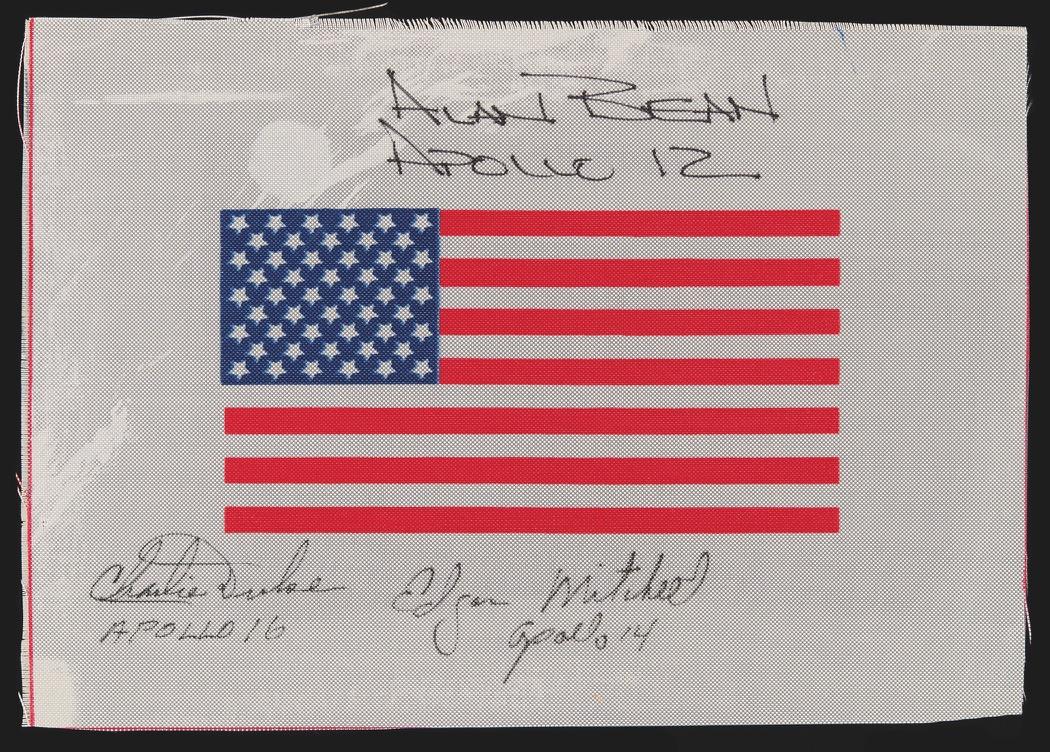 Alan Bean
Apollo 12
Charlie Duke
APOLLO 16
Edgar Mitchell
apollo 14